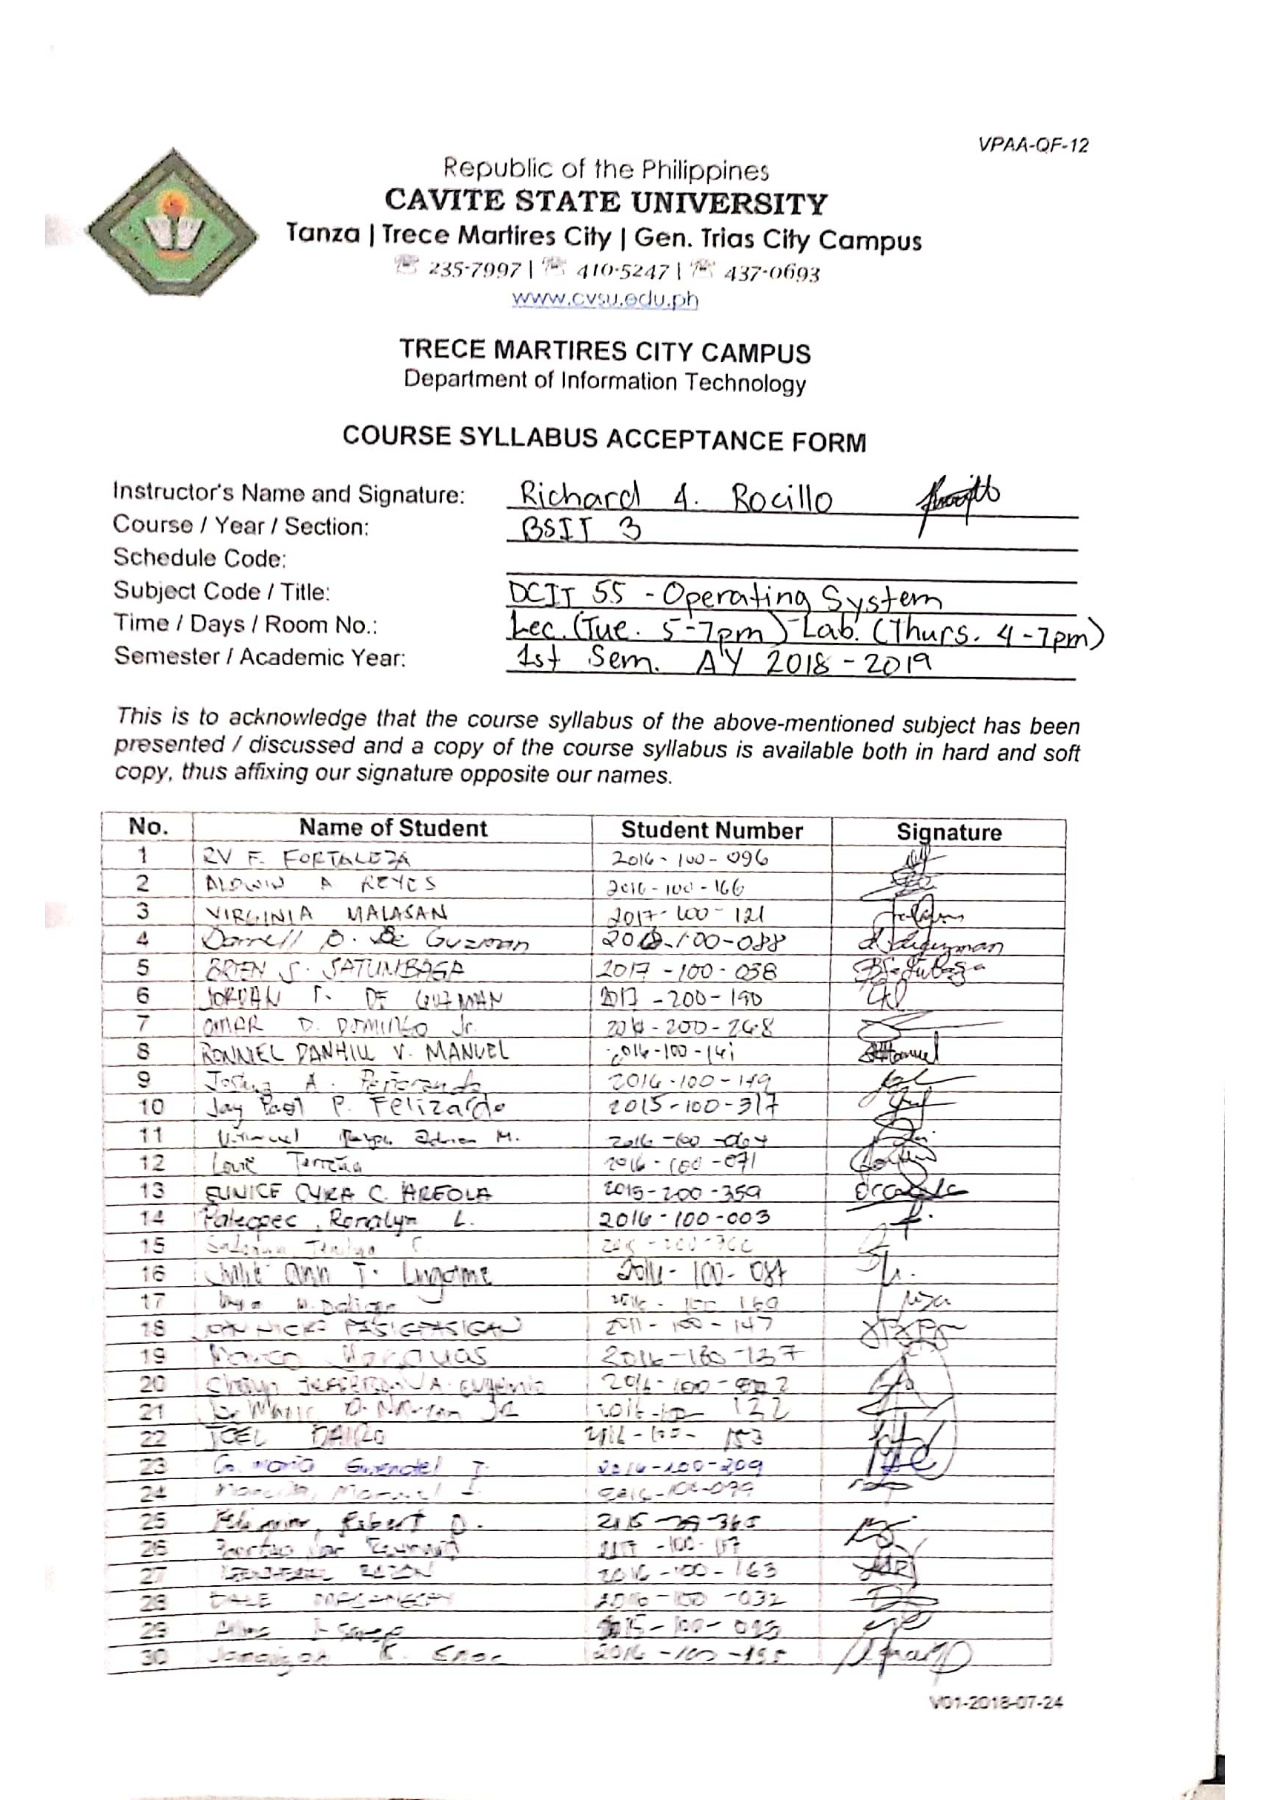 VPAA-QF-12
Republic of the Philippines
CAVITE STATE UNIVERSITY
Tanza | Trece Martires City | Gen. Trias City Campus
235-7997 | 410-5247 | 437-0693
www.cvsu.edu.ph
TRECE MARTIRES CITY CAMPUS
Department of Information Technology
COURSE SYLLABUS ACCEPTANCE FORM
Instructor's Name and Signature: Richard A. Rocillo
Course / Year / Section: BSIT 3
Schedule Code:
Subject Code / Title: DCIT 55 - Operating System
Time / Days / Room No.: Lec. (Tue. 5-7pm) Lab. (Thurs. 4-7pm)
Semester / Academic Year: 1st Sem. AY 2018 - 2019
This is to acknowledge that the course syllabus of the above-mentioned subject has been
presented / discussed and a copy of the course syllabus is available both in hard and soft
copy, thus affixing our signature opposite our names.
No. Name of Student Student Number Signature
1 RV F. FORTALEZA 2016-100-096
2 ALDWIN A REYES 2016-100-166
3 VIRGINIA MALASAN 2017-100-121
4 Darrell D. De Guzman -100-088
5 BRIEN S. SATUMBAGA 2017-100-038
6 JORDAN T. DE GUZMAN 2017-200-190
7 OMAR D. DOMINGO Jr. -200-268
8 RONNIEL DANHILL V. MANUEL 2016-100-141
9 Joshua A. Peñaranda 2016-100-149
10 Jay Paol P. Felizardo 2015-100-317
11 Ralph Adrien M. 2016-100-064
12 Louie Terreña 2016-100-071
13 EUNICE CYRA C. AREOLA 2015-200-359
14 Palegpec, Ronalyn L. 2016-100-003
15
16 Ann T. Lingame
17
18 PASIGPASIGAN -100-147
19 Marco 2016-100-137
20 JEFFERSON A. Eugenio
21 122
22 JOEL 153
23 2016-100-209
24
25 Robert D. 2015- -365
26
27 RAZON 2016-100-163
28 DALE 2016-100-032
29
30 K. 2016-100-195
V01-2018-07-24